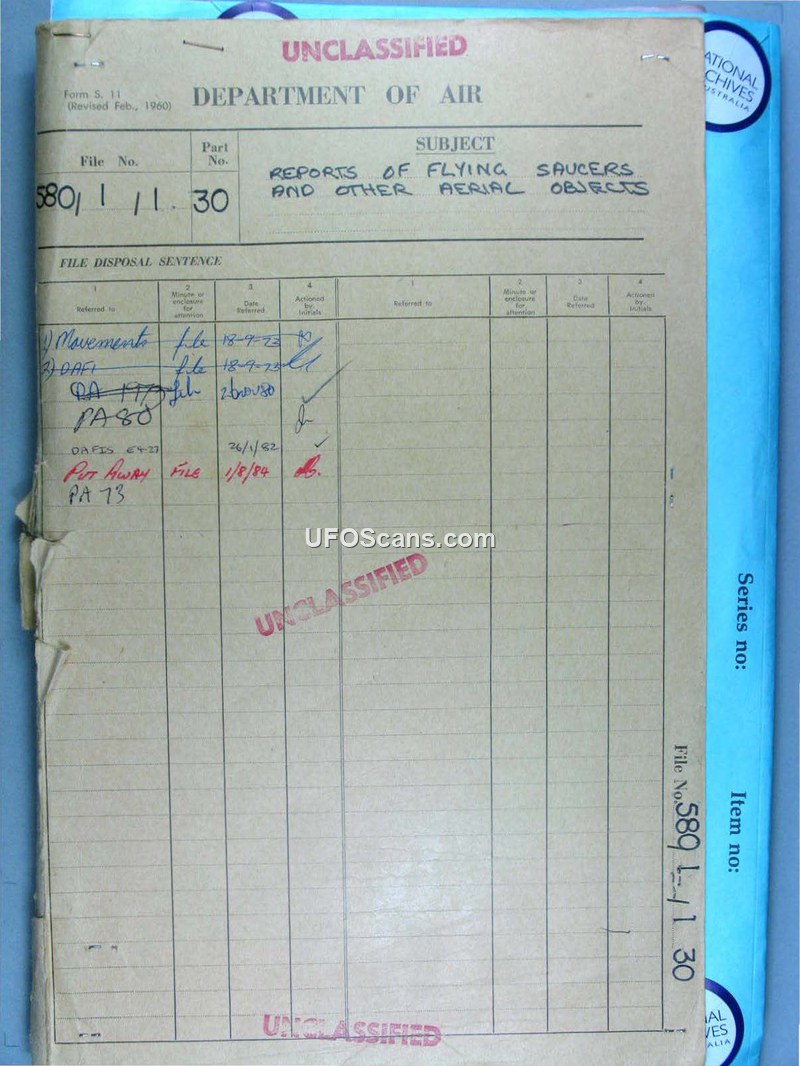 UNCLASSIFIED
Form S. 11
(Revised Feb., 1960)
DEPARTMENT OF AIR
NATIONAL
ARCHIVES
AUSTRALIA
File No.
Part
No.
SUBJECT
580/1/1.
30
REPORTS OF FLYING SAUCERS
AND OTHER AERIAL OBJECTS
FILE DISPOSAL SENTENCE
1 2 3 4 1 2 3 4
Referred to
Minute or
enclosure
for
attention
Date
Referred
Actioned
by.
Initials
Referred to
Minute or
enclosure
for
attention
Date
Referred
Actioned
by.
Initials
1) Movements file 18-9-73
2) DAFI file 18-9-73
PA 1973
PA 80
DAFIS 26/1/82
PUT AWAY FILE 1/8/84
PA 73
UFOScans.com
UNCLASSIFIED
Series no:
Item no:
File No. 580/1/1 30
UNCLASSIFIED